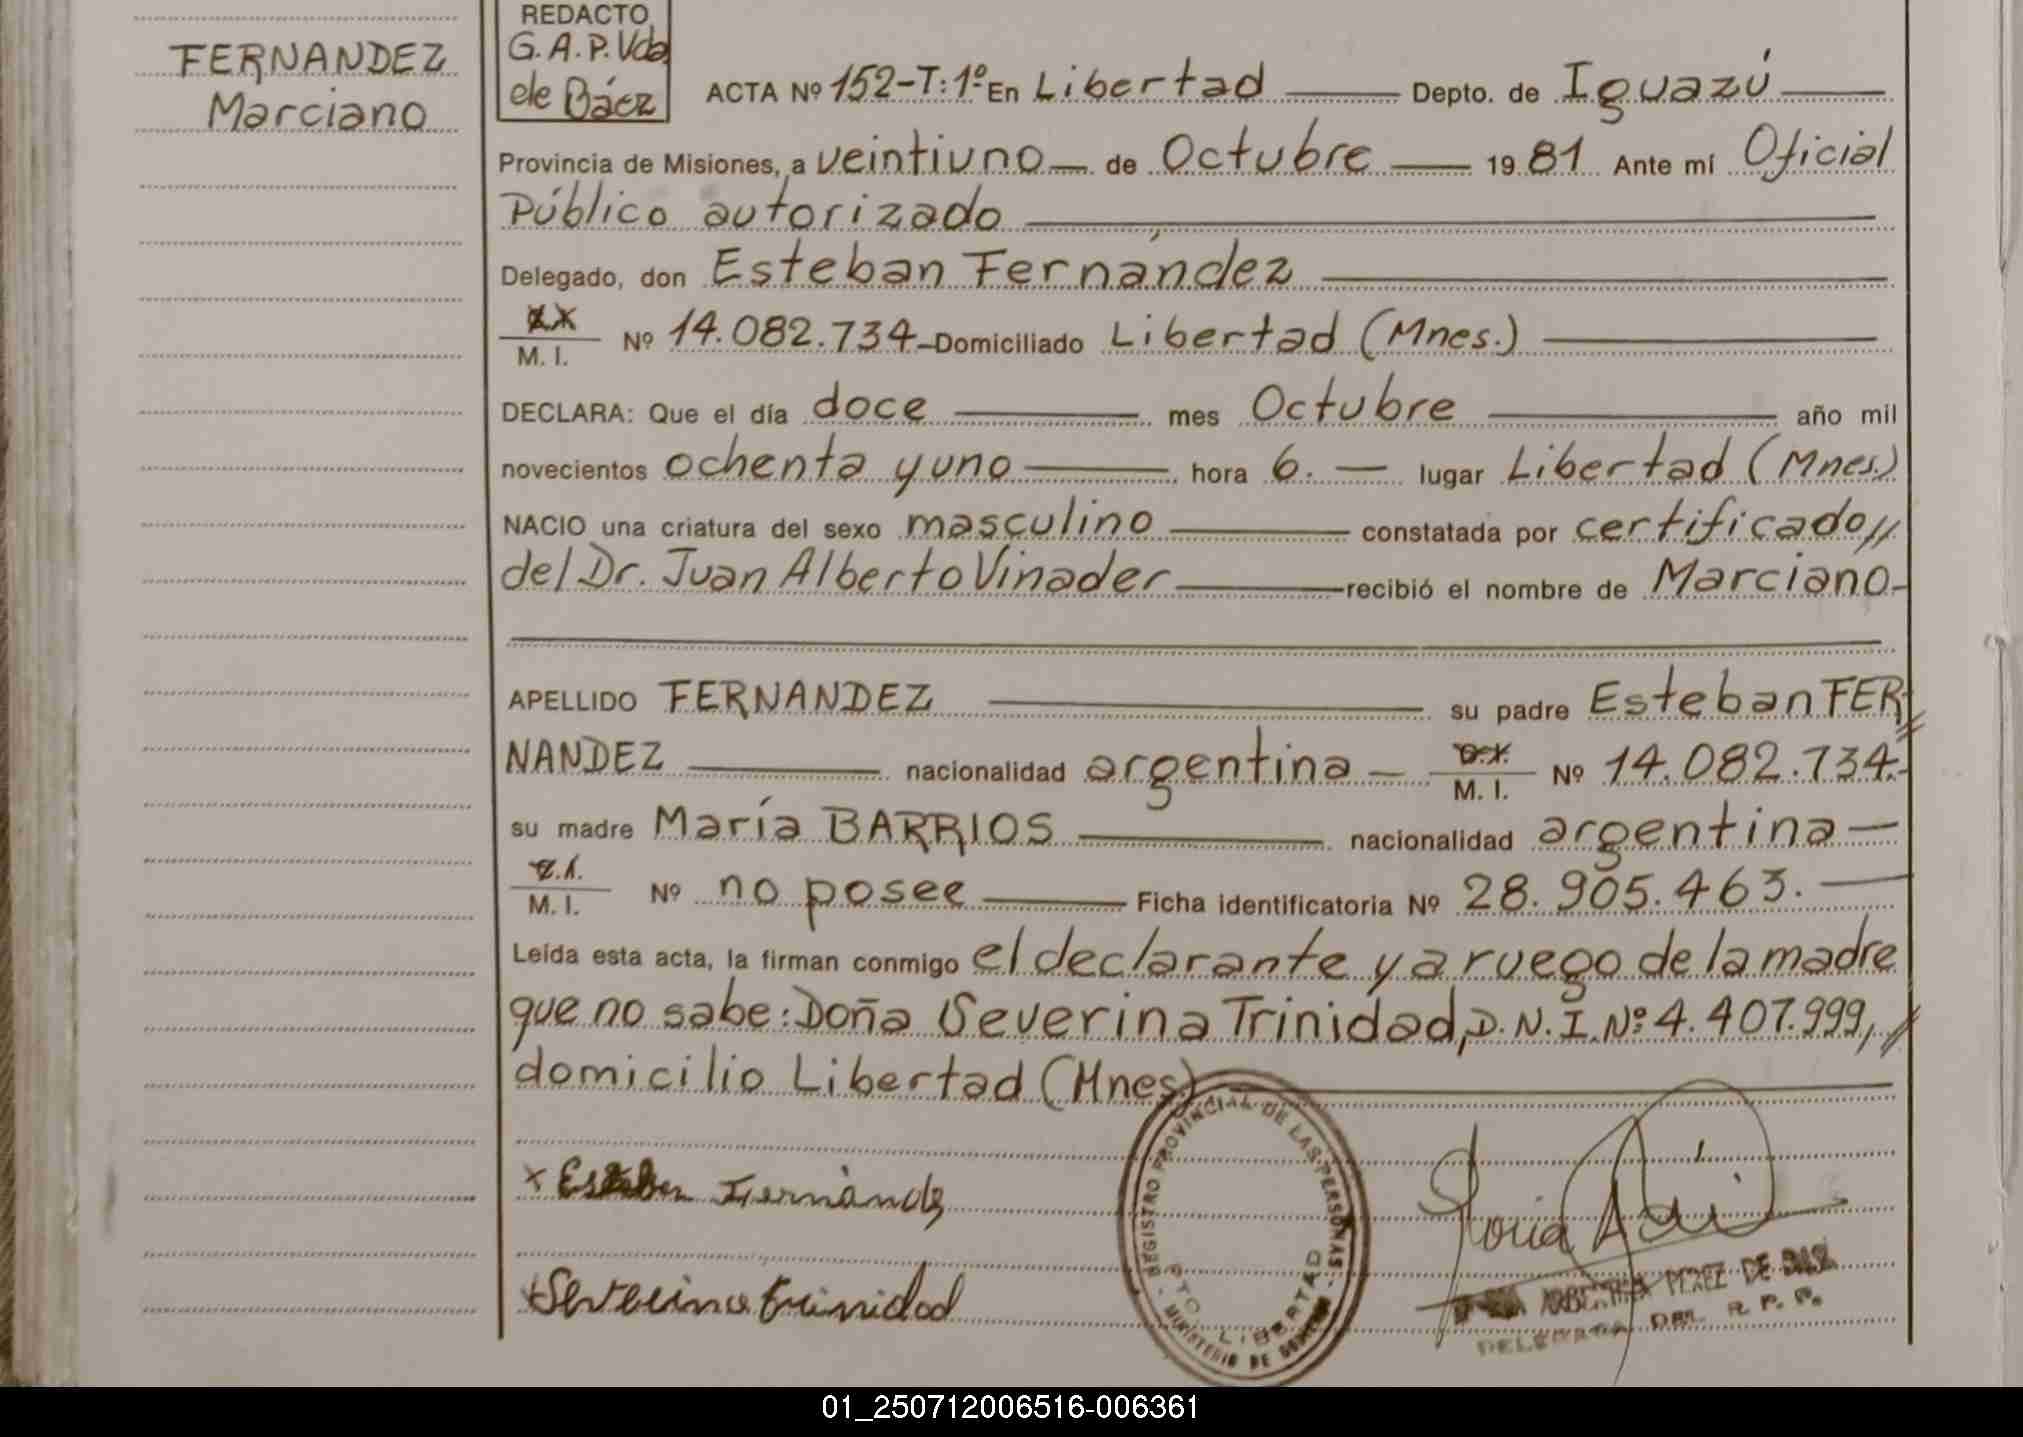 FERNANDEZ
Marciano
REDACTO
G. A. P. Vda.
de Báez
ACTA Nº 152-T: 1º En Libertad Depto. de Iguazú
Provincia de Misiones, a veintiuno de Octubre 1981 Ante mí Oficial
Público autorizado
Delegado, don Esteban Fernández
M. I. Nº 14.082.734 Domiciliado Libertad (Mnes.)
DECLARA: Que el día doce mes Octubre año mil
novecientos ochenta y uno hora 6. lugar Libertad (Mnes.)
NACIO una criatura del sexo masculino constatada por certificado //
del Dr. Juan Alberto Vinader recibió el nombre de Marciano
APELLIDO FERNANDEZ su padre Esteban FER
NANDEZ nacionalidad argentina M. I. Nº 14.082.734.
su madre María BARRIOS nacionalidad argentina
M. I. Nº no posee Ficha identificatoria Nº 28.905.463.
Leída esta acta, la firman conmigo el declarante y a ruego de la madre
que no sabe: Doña Severina Trinidad, D. N. I. Nº 4.407.999, //
domicilio Libertad (Mnes.)
REGISTRO PROVINCIAL DE LAS PERSONAS
PTO. LIBERTAD
MINISTERIO DE GOBIERNO
x Esteban Fernández
Severina Trinidad
PEREZ DE BAEZ
DELEGADA DEL R. P. P.
01_250712006516-006361